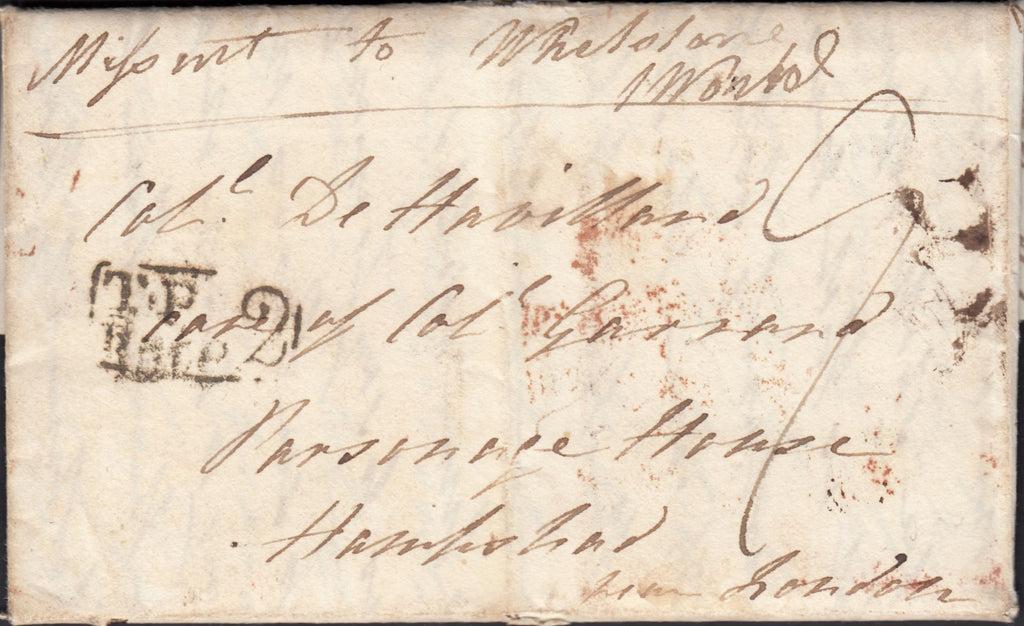 Missent to Whetstone
Col.l De Havilland
T.P
Rate 2
Care of Col.l Garrard
Parsonage House
Hampstead
near London